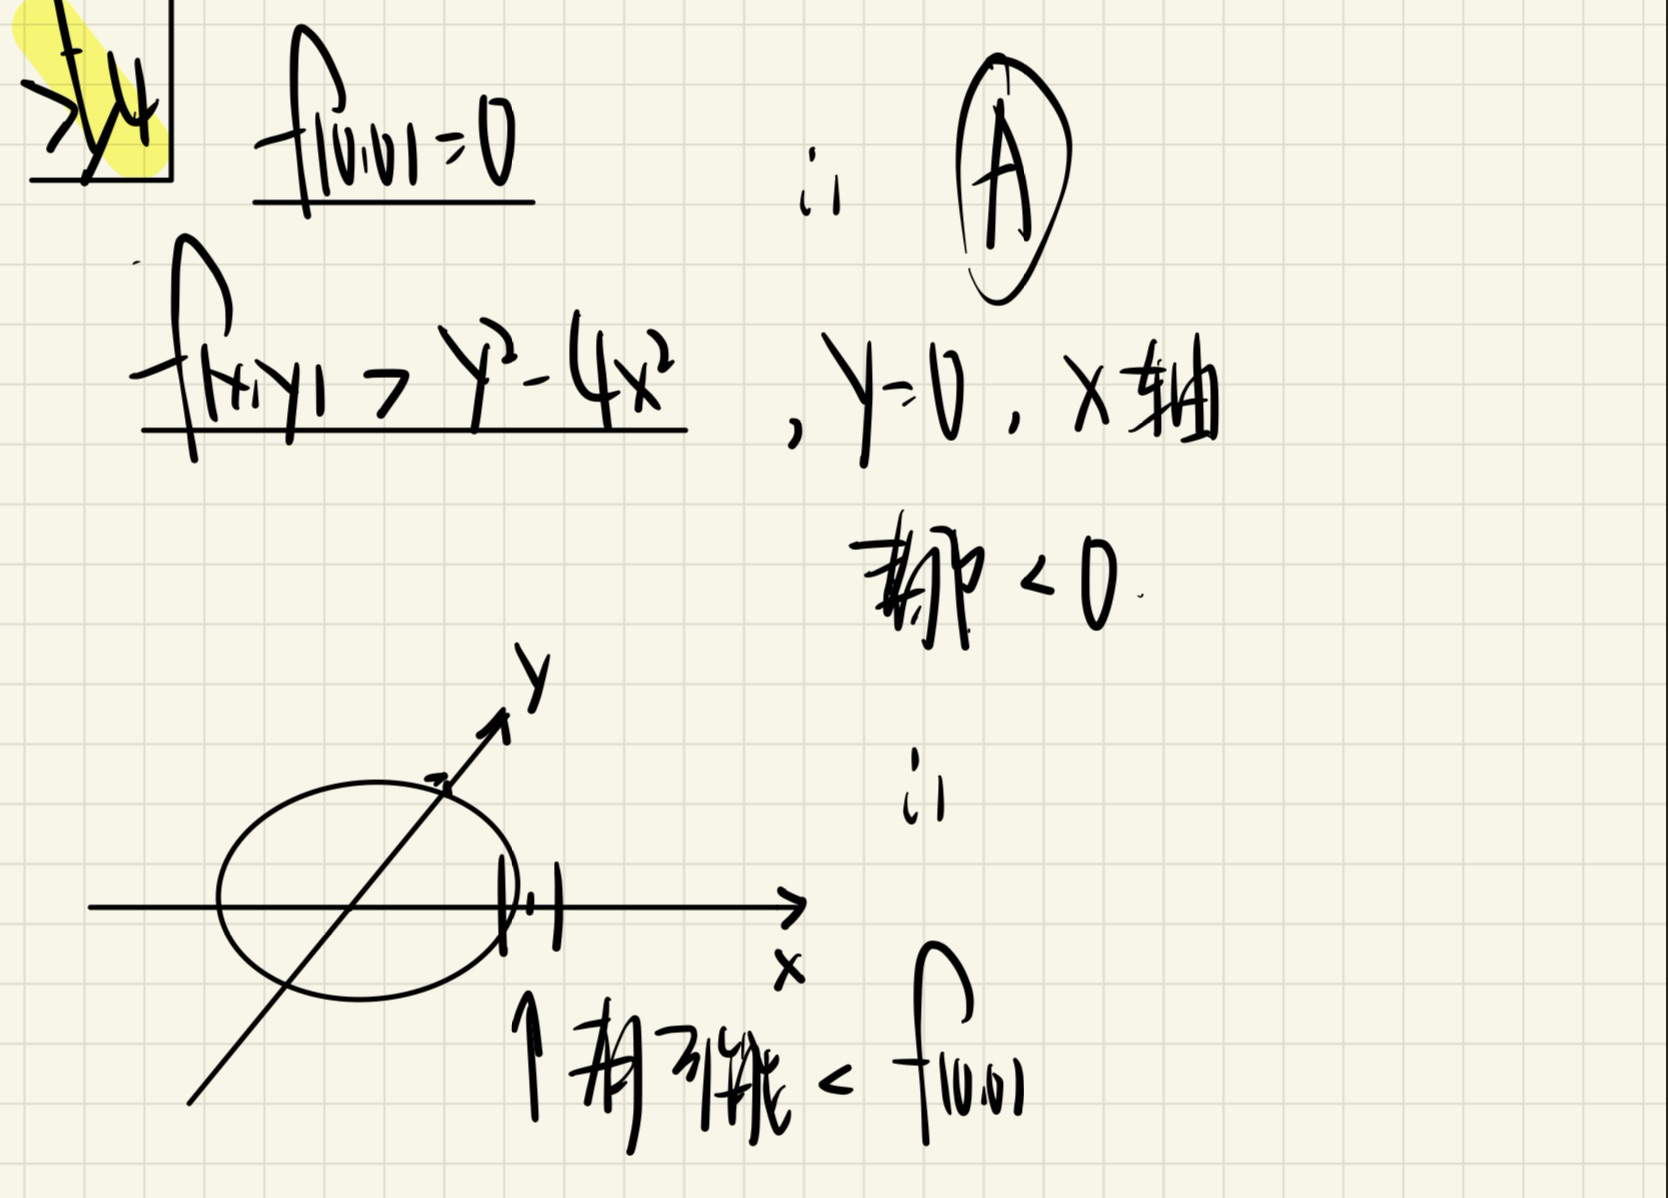 f(0,0)=0 ∴ A
f(x,y) > y²-4x² , y=0, x轴
都 < 0
y
∴
x
有可能 < f(0,0)